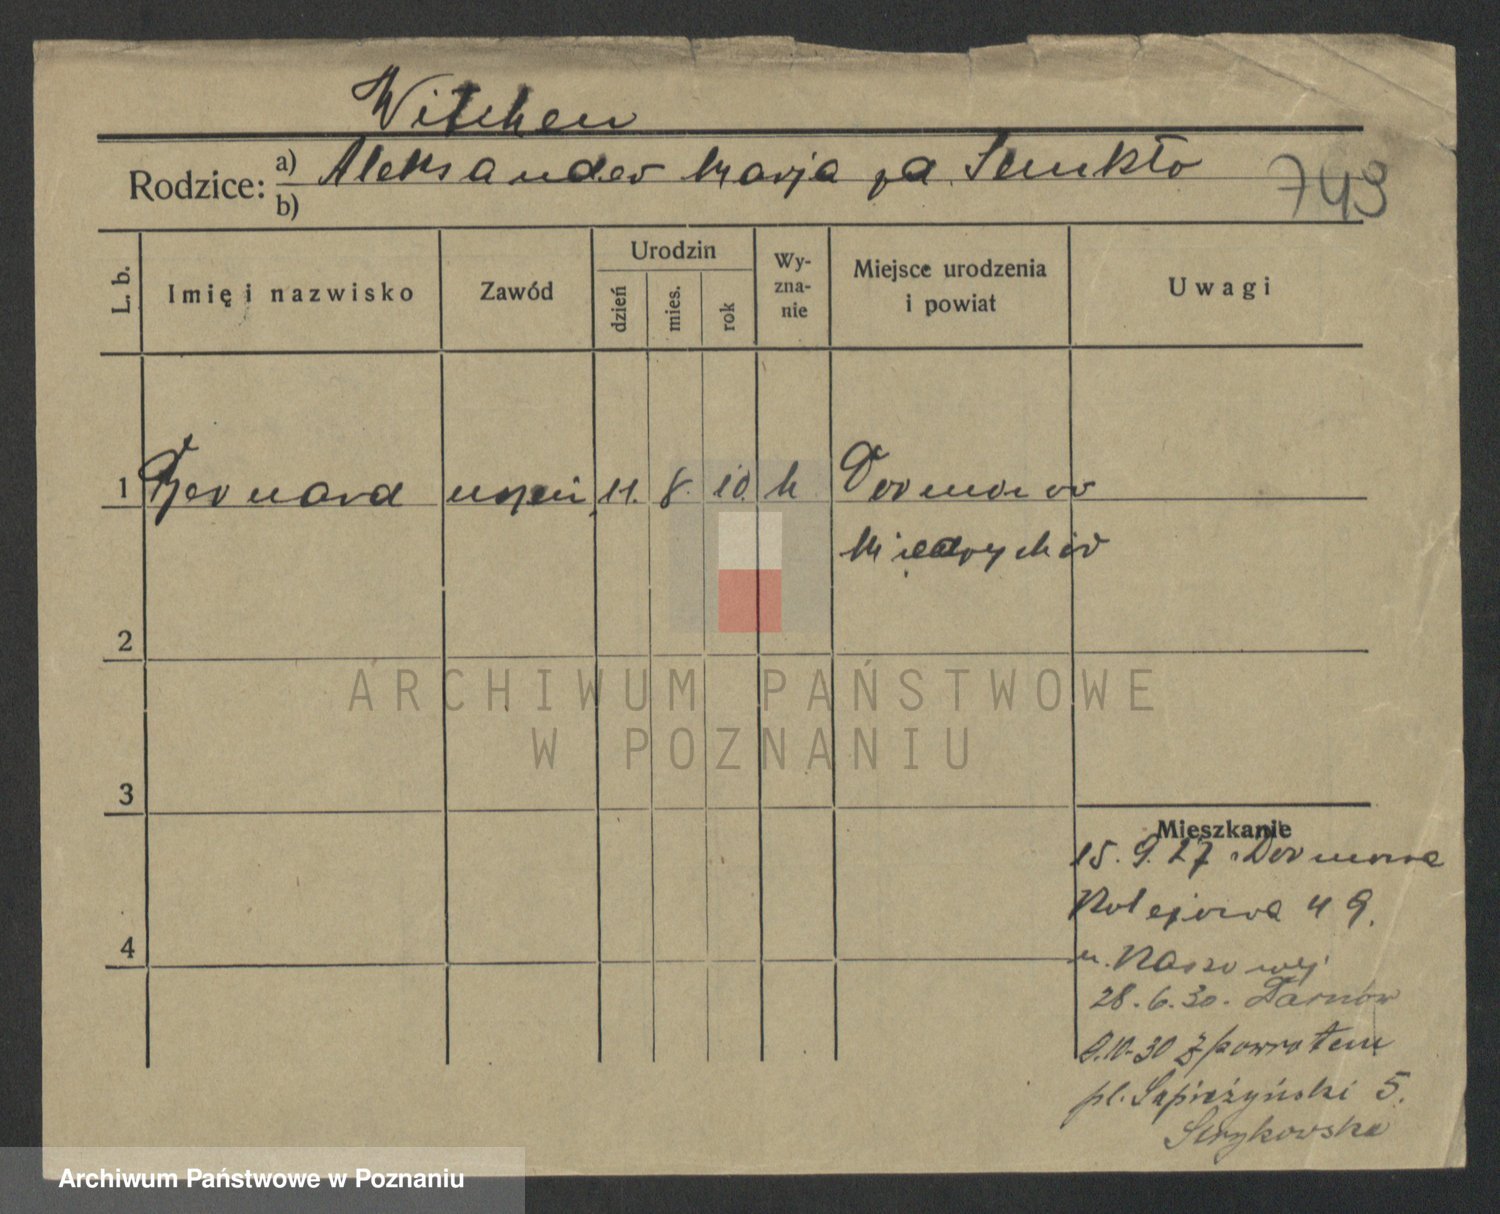 Witchen
Rodzice: a) Aleksander Marja za Szukło
b)
743
L. b.
Imię i nazwisko
Zawód
Urodzin
dzień
mies.
rok
Wy-
zna-
nie
Miejsce urodzenia
i powiat
Uwagi
1 Bernard uczeń 11. 8. 10. k Dormowo
Międzychód
2
3
4
Mieszkanie
15. 9. 27 Dormowo
Kolejowa 49.
u.
28. 6. 30. Tarnów
9.10-30 z powrotem
pl. Sapieżyński 5.
Strykowska
ARCHIWUM PAŃSTWOWE
W POZNANIU
Archiwum Państwowe w Poznaniu